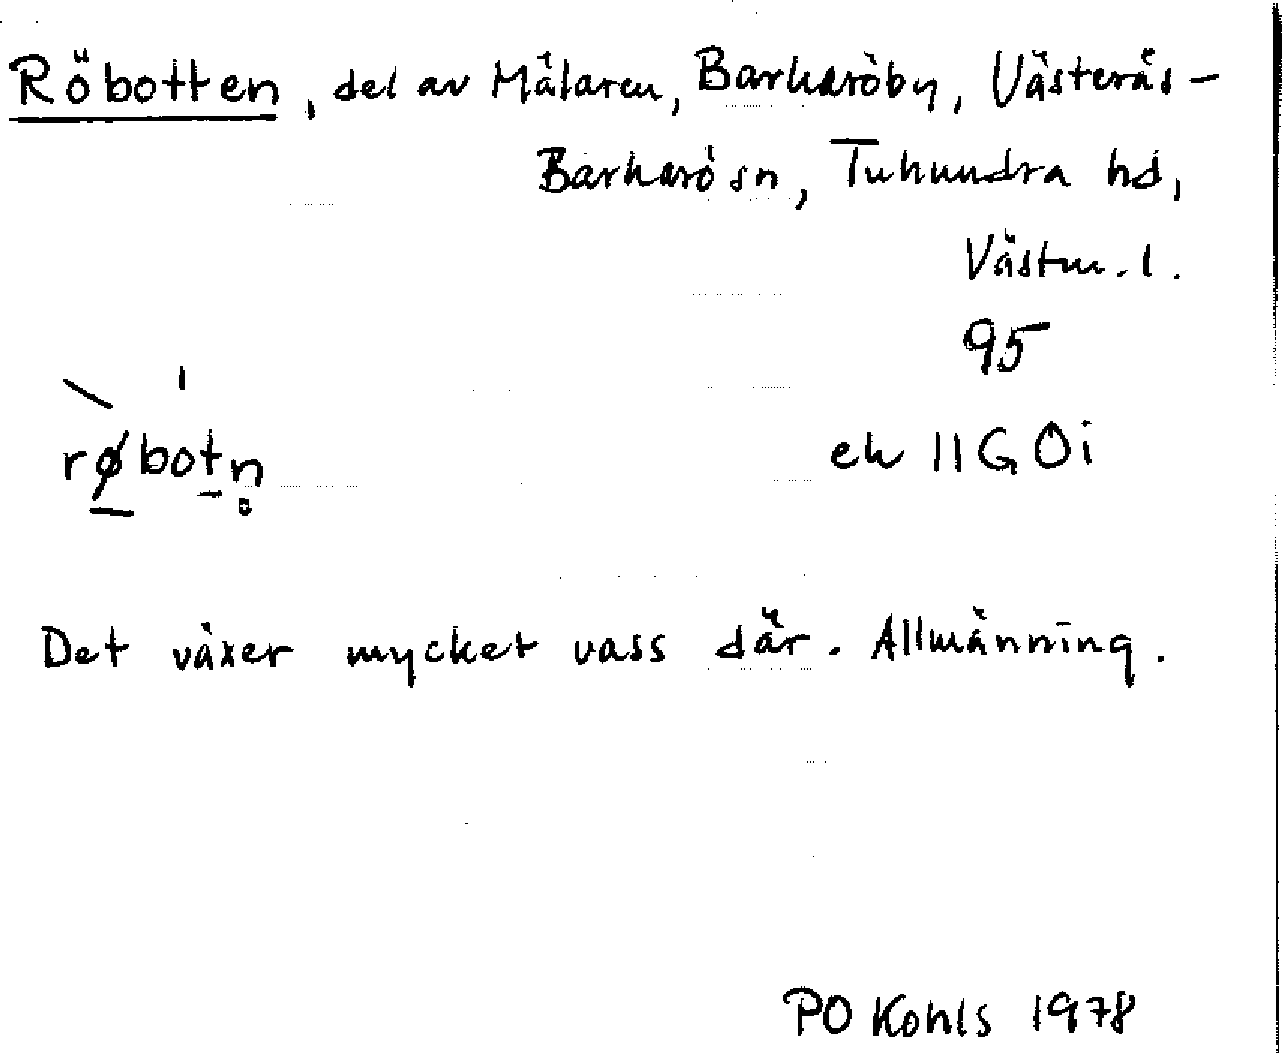 Röbotten, del av Mälaren, Barkaröby, Västerås-
Barkarö sn, Tuhundra hd,
Västm. l.
95
røbotn̥
ek 11G 0i
Det växer mycket vass där. Allmänning.
PO Kohls 1978